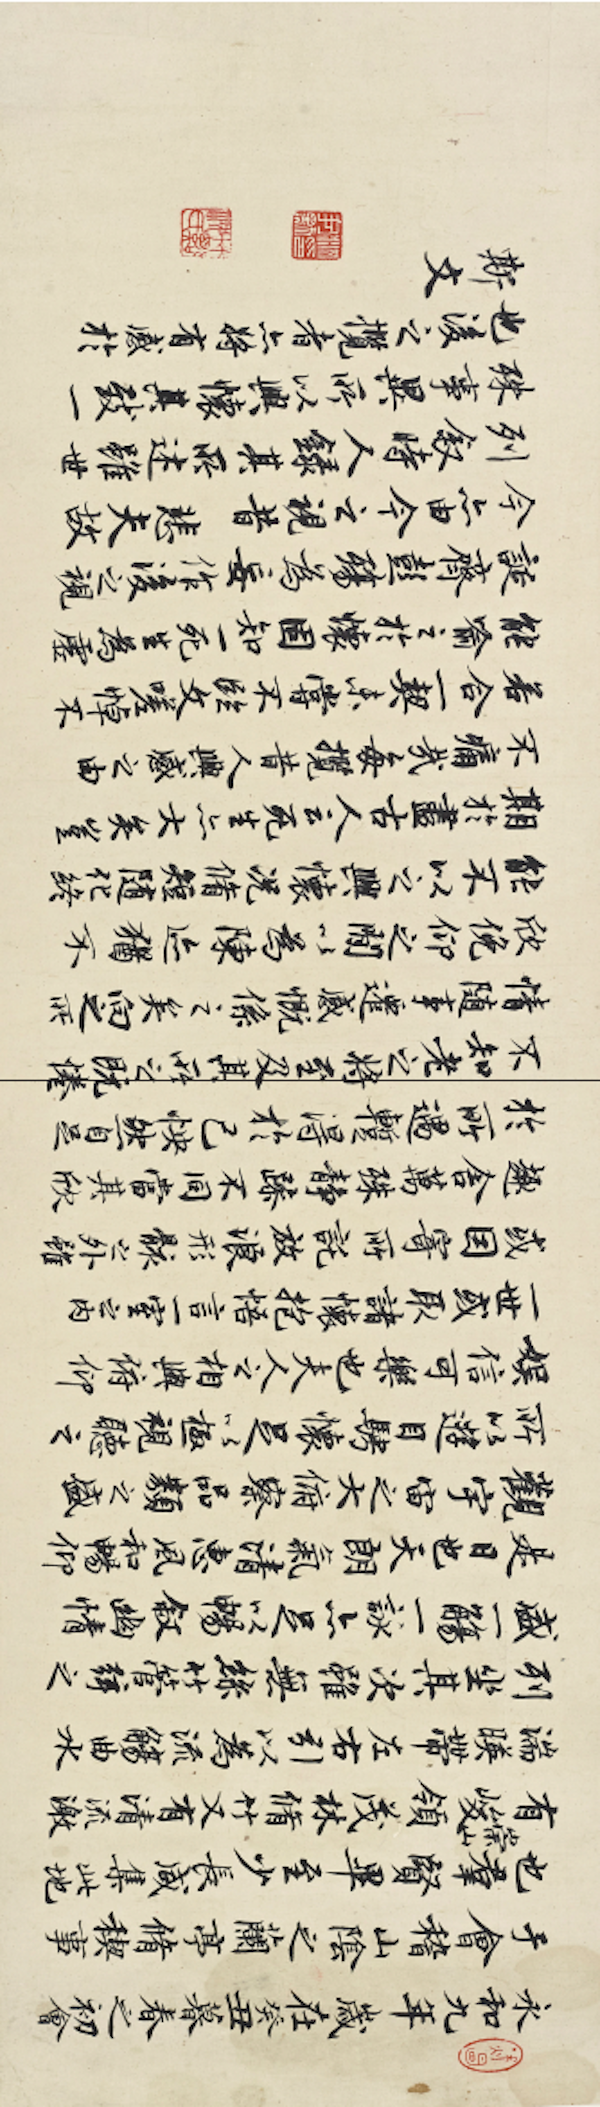 永和九年歲在癸丑暮春之初會
于會稽山陰之蘭亭脩禊事
也羣賢畢至少長咸集此地
有崇山峻領茂林脩竹又有清流激
湍暎帶左右引以為流觴曲水
列坐其次雖無絲竹管弦之
盛一觴一詠亦足以暢敘幽情
是日也天朗氣清惠風和暢仰
觀宇宙之大俯察品類之盛
所以遊目騁懷足以極視聽之
娛信可樂也夫人之相與俯仰
一世或取諸懷抱悟言一室之內
或因寄所託放浪形骸之外雖
趣舍萬殊靜躁不同當其欣
於所遇暫得於己快然自足
不知老之將至及其所之既惓
情隨事遷感慨係之矣向之所
欣俛仰之間以為陳迹猶不
能不以之興懷況脩短隨化終
期於盡古人云死生亦大矣豈
不痛哉每攬昔人興感之由
若合一契未嘗不臨文嗟悼不
能喻之於懷固知一死生為虛
誕齊彭殤為妄作後之視
今亦由今之視昔悲夫故
列敘時人錄其所述雖世
殊事異所以興懷其致一
也後之攬者亦將有感於
斯文